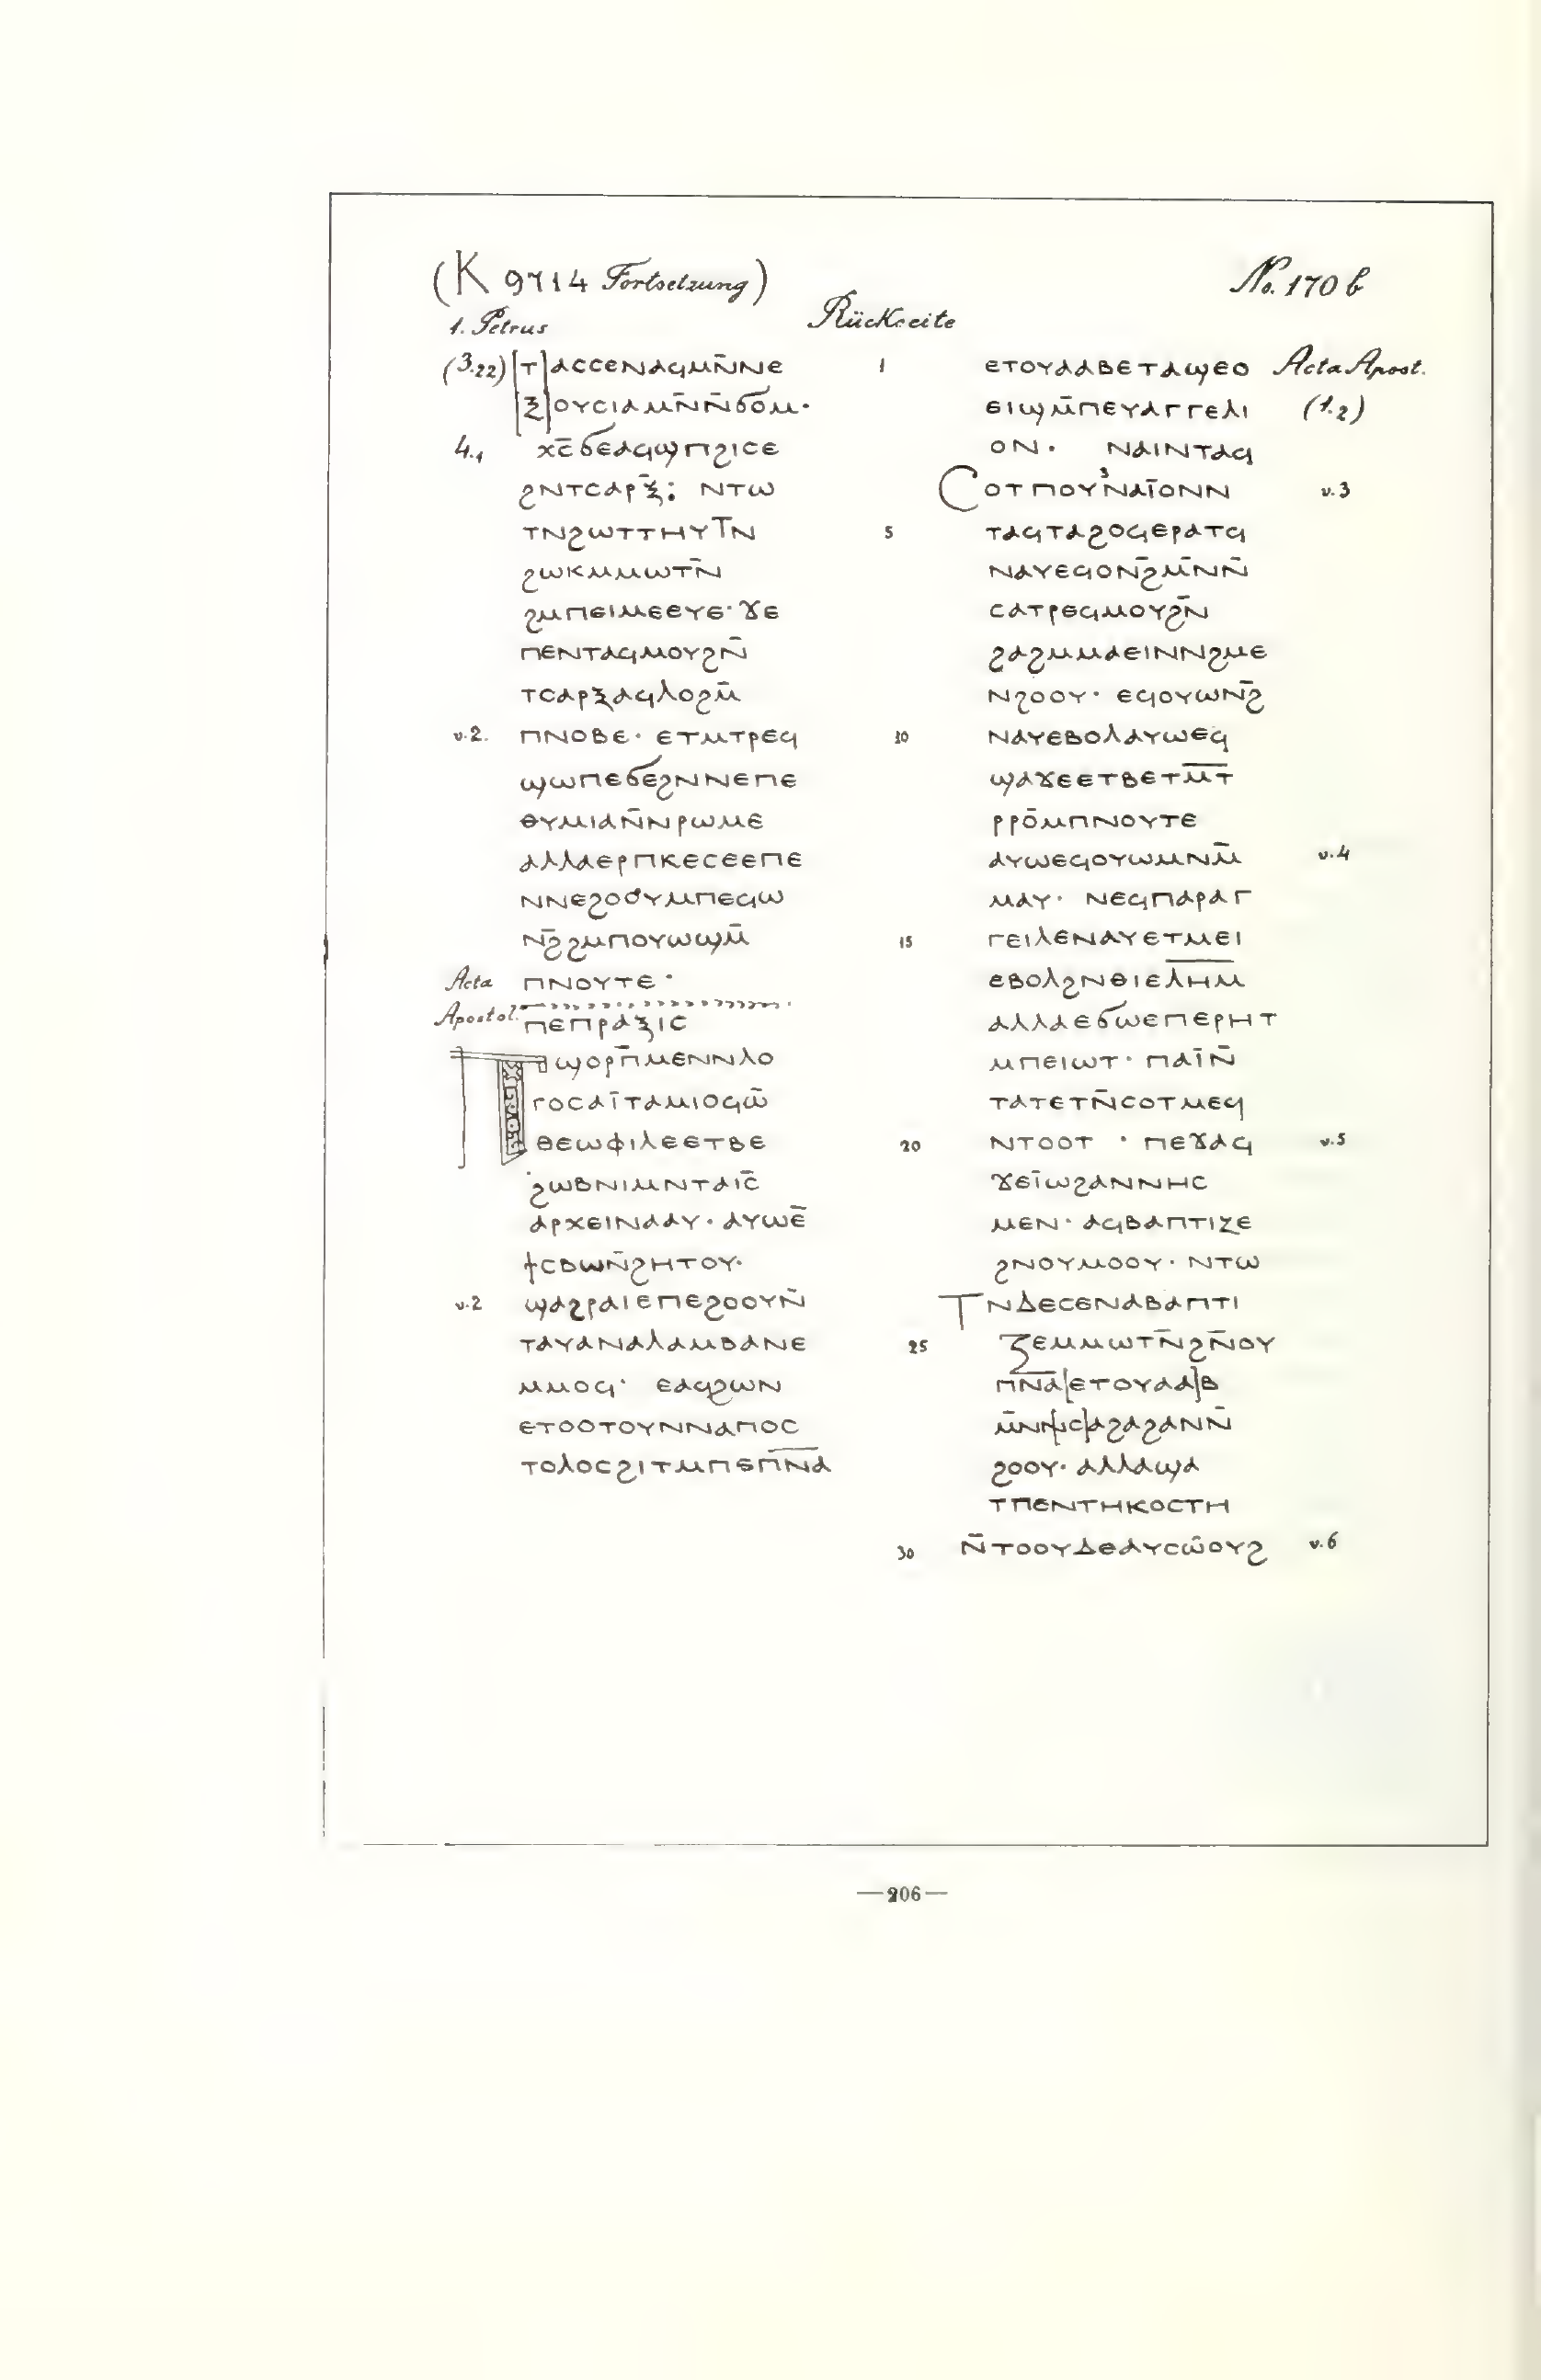 (K 9714 Fortsetzung)
No. 170 b
1. Petrus
Rückseite
(3.22) [ⲧ]ⲁⲥⲥⲉⲛⲁϥⲙⲛ̄ⲛⲉ
[ⲝ]ⲟⲩⲥⲓⲁⲙⲛ̄ⲛ̄ϭⲟⲙ·
4.1 ⲭⲥ̄ϭⲉⲁϥϣⲡϩⲓⲥⲉ
ϩⲛⲧⲥⲁⲣⲝ̄: ⲛⲧⲱ
ⲧⲛϩⲱⲧⲧⲏⲩⲧ̄ⲛ
ϩⲱⲕⲙⲙⲱⲧⲛ̄
ϩⲙⲡⲉⲓⲙⲉⲉⲩⲉ·ϫⲉ
ⲡⲉⲛⲧⲁϥⲙⲟⲩϩⲛ̄
ⲧⲥⲁⲣⲝⲁϥⲗⲟϩⲙ̄
v.2. ⲡⲛⲟⲃⲉ· ⲉⲧⲙⲧⲣⲉϥ
ϣⲱⲡⲉϭⲉϩⲛⲛⲉⲡⲉ
ⲑⲩⲙⲓⲁⲛ̄ⲛⲣⲱⲙⲉ
ⲁⲗⲗⲁⲉⲣⲡⲕⲉⲥⲉⲉⲡⲉ
ⲛⲛⲉϩⲟⲟⲩⲙⲡⲉϥⲱ
ⲛϩ̄ϩⲙⲡⲟⲩⲱϣⲙ̄
Acta ⲡⲛⲟⲩⲧⲉ·
Apostol. ⲡⲉⲡⲣⲁⲝⲓⲥ
ⲡϣⲟⲣⲡ̄ⲙⲉⲛⲛⲗⲟ
ⲅⲟⲥⲁⲓ̄ⲧⲁⲙⲓⲟϥⲱ̄
ⲑⲉⲱⲫⲓⲗⲉⲉⲧⲃⲉ
ϩⲱⲃⲛⲓⲙⲛⲧⲁⲓⲥ̄
ⲁⲣⲭⲉⲓⲛⲁⲁⲩ·ⲁⲩⲱⲉ̄
ϯⲥⲃⲱⲛ̄ϩⲏⲧⲟⲩ·
v.2 ϣⲁϩⲣⲁⲓⲉⲡⲉϩⲟⲟⲩⲛ̄
ⲧⲁⲩⲁⲛⲁⲗⲁⲙⲃⲁⲛⲉ
ⲙⲙⲟϥ· ⲉⲁϥϩⲱⲛ
ⲉⲧⲟⲟⲧⲟⲩⲛⲛⲁⲡⲟⲥ
ⲧⲟⲗⲟⲥϩⲓⲧⲙⲡⲉⲡ̄ⲛ̄ⲁ̄
1 ⲉⲧⲟⲩⲁⲁⲃⲉⲧⲁϣⲉⲟ Acta Apost.
ⲉⲓϣⲙ̄ⲡⲉⲩⲁⲅⲅⲉⲗⲓ (1.2)
ⲟⲛ· ⲛⲁⲓⲛⲧⲁϥ
ⲥⲟⲧⲡⲟⲩ³ⲛⲁⲓ̄ⲟⲛⲛ v.3
5 ⲧⲁϥⲧⲁϩⲟϥⲉⲣⲁⲧϥ
ⲛⲁⲩⲉϥⲟⲛϩ̄ⲙ̄ⲛⲛ̄
ⲥⲁⲧⲣⲉϥⲙⲟⲩϩⲛ̄
ϩⲁϩⲙⲙⲁⲉⲓⲛⲛϩⲙⲉ
ⲛϩⲟⲟⲩ· ⲉϥⲟⲩⲱⲛϩ̄
10 ⲛⲁⲩⲉⲃⲟⲗⲁⲩⲱⲉϥ
ϣⲁϫⲉⲉⲧⲃⲉⲧⲙ̄ⲧ̄
ⲣⲣⲟ̄ⲙⲡⲛⲟⲩⲧⲉ
ⲁⲩⲱⲉϥⲟⲩⲱⲙⲛⲙ̄ v.4
ⲙⲁⲩ· ⲛⲉϥⲡⲁⲣⲁⲅ
15 ⲅⲉⲓⲗⲉⲛⲁⲩⲉⲧⲙⲉⲓ
ⲉⲃⲟⲗϩⲛⲑⲓⲉⲗ̄ⲏ̄ⲙ̄
ⲁⲗⲗⲁⲉϭⲱⲉⲡⲉⲣⲏⲧ
ⲙⲡⲉⲓⲱⲧ· ⲡⲁⲓ̄ⲛ̄
ⲧⲁⲧⲉⲧⲛ̄ⲥⲟⲧⲙⲉϥ
20 ⲛⲧⲟⲟⲧ · ⲡⲉϫⲁϥ v.5
ϫⲉⲓ̄ⲱϩⲁⲛⲛⲏⲥ
ⲙⲉⲛ· ⲁϥⲃⲁⲡⲧⲓⲍⲉ
ϩⲛⲟⲩⲙⲟⲟⲩ· ⲛⲧⲱ
ⲧⲛⲇⲉⲥⲉⲛⲁⲃⲁⲡⲧⲓ
25 ⲍⲉⲙⲙⲱⲧⲛ̄ϩⲛ̄ⲟⲩ
ⲡ̄ⲛ̄ⲁ̄[ⲉⲧⲟⲩⲁⲁ]ⲃ
ⲙ̄ⲛⲛ[ⲥ]ⲁϩⲁϩⲁⲛⲛ̄
ϩⲟⲟⲩ· ⲁⲗⲗⲁϣⲁ
ⲧⲡⲉⲛⲧⲏⲕⲟⲥⲧⲏ
30 ⲛ̄ⲧⲟⲟⲩⲇⲉⲁⲩⲥⲱ̄ⲟⲩϩ v.6
—206—